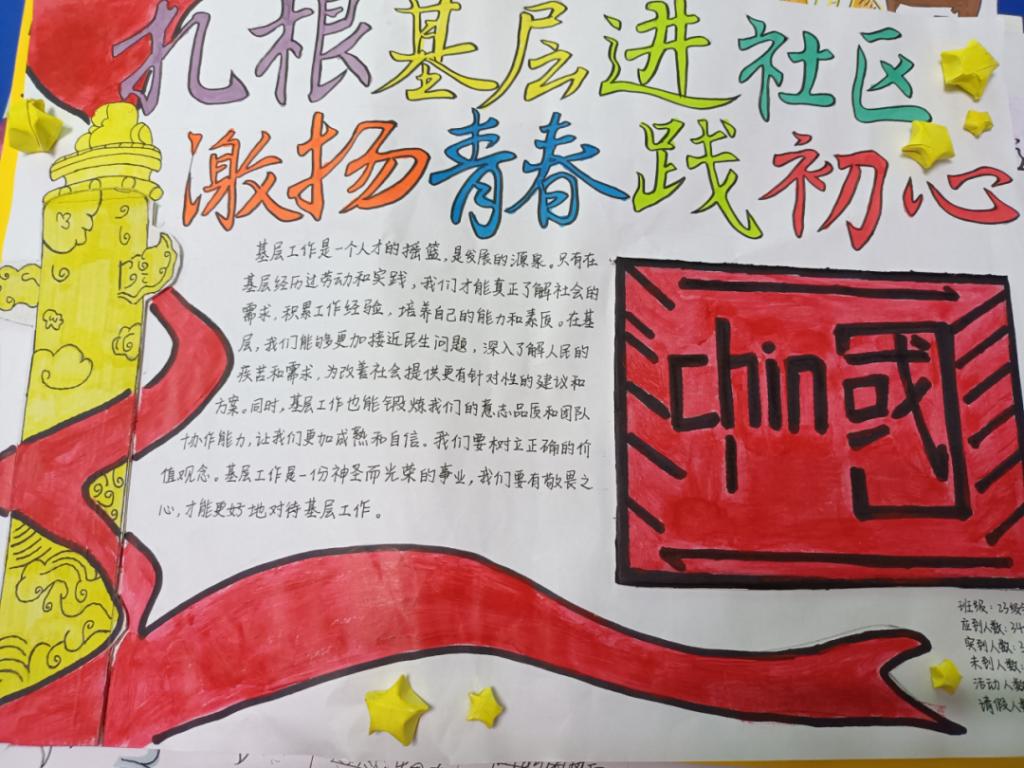 扎根基层进社区
激扬青春践初心
基层工作是一个人才的摇篮,是发展的源泉。只有在
基层经历过劳动和实践,我们才能真正了解社会的
需求,积累工作经验,培养自己的能力和素质。在基
层,我们能够更加接近民生问题,深入了解人民的
疾苦和需求,为改善社会提供更有针对性的建议和
方案。同时,基层工作也能锻炼我们的意志品质和团队
协作能力,让我们更加成熟和自信。我们要树立正确的价
值观念。基层工作是一份神圣而光荣的事业,我们要有敬畏之
心,才能更好地对待基层工作。
chin國
班级:23级
应到人数:34
实到人数:3
未到人数:
活动人数
请假人数